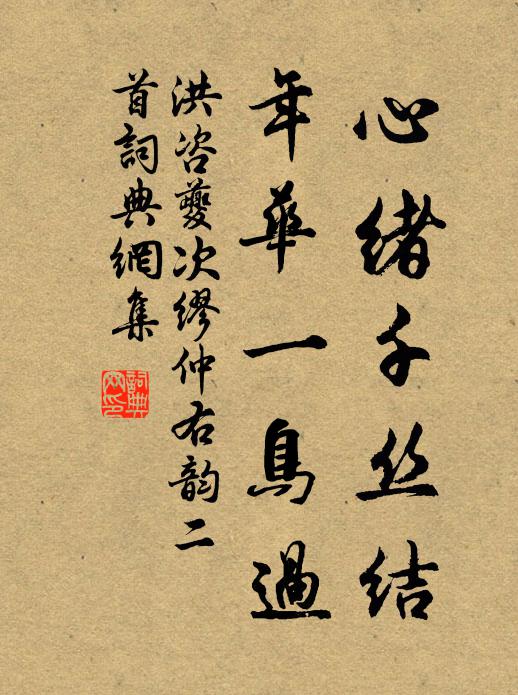 心緒千丝结
年華一鳥過
洪咨夔次繆仲右韵二
首詞典網集
詞典
网印